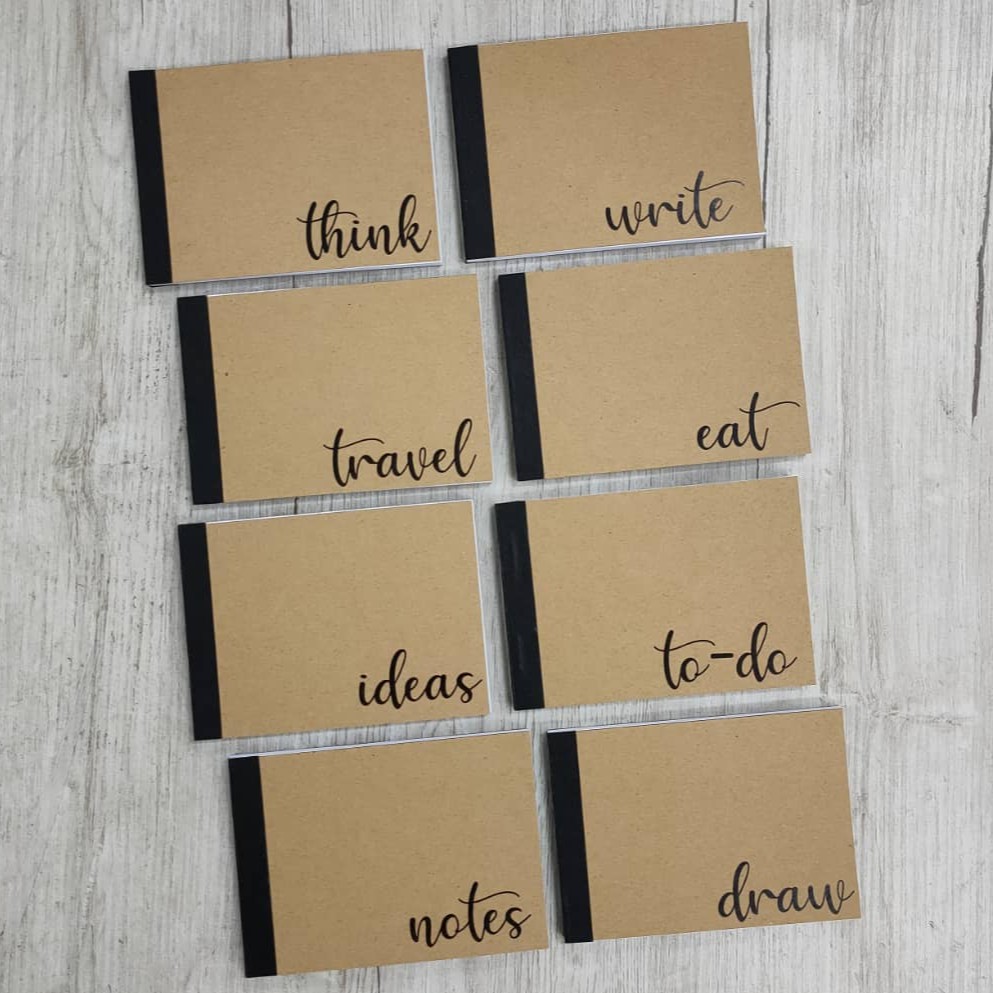 think
write
travel
eat
ideas
to-do
notes
draw